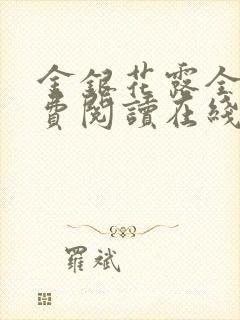 金銀花露全
費閱讀在綫
羅斌